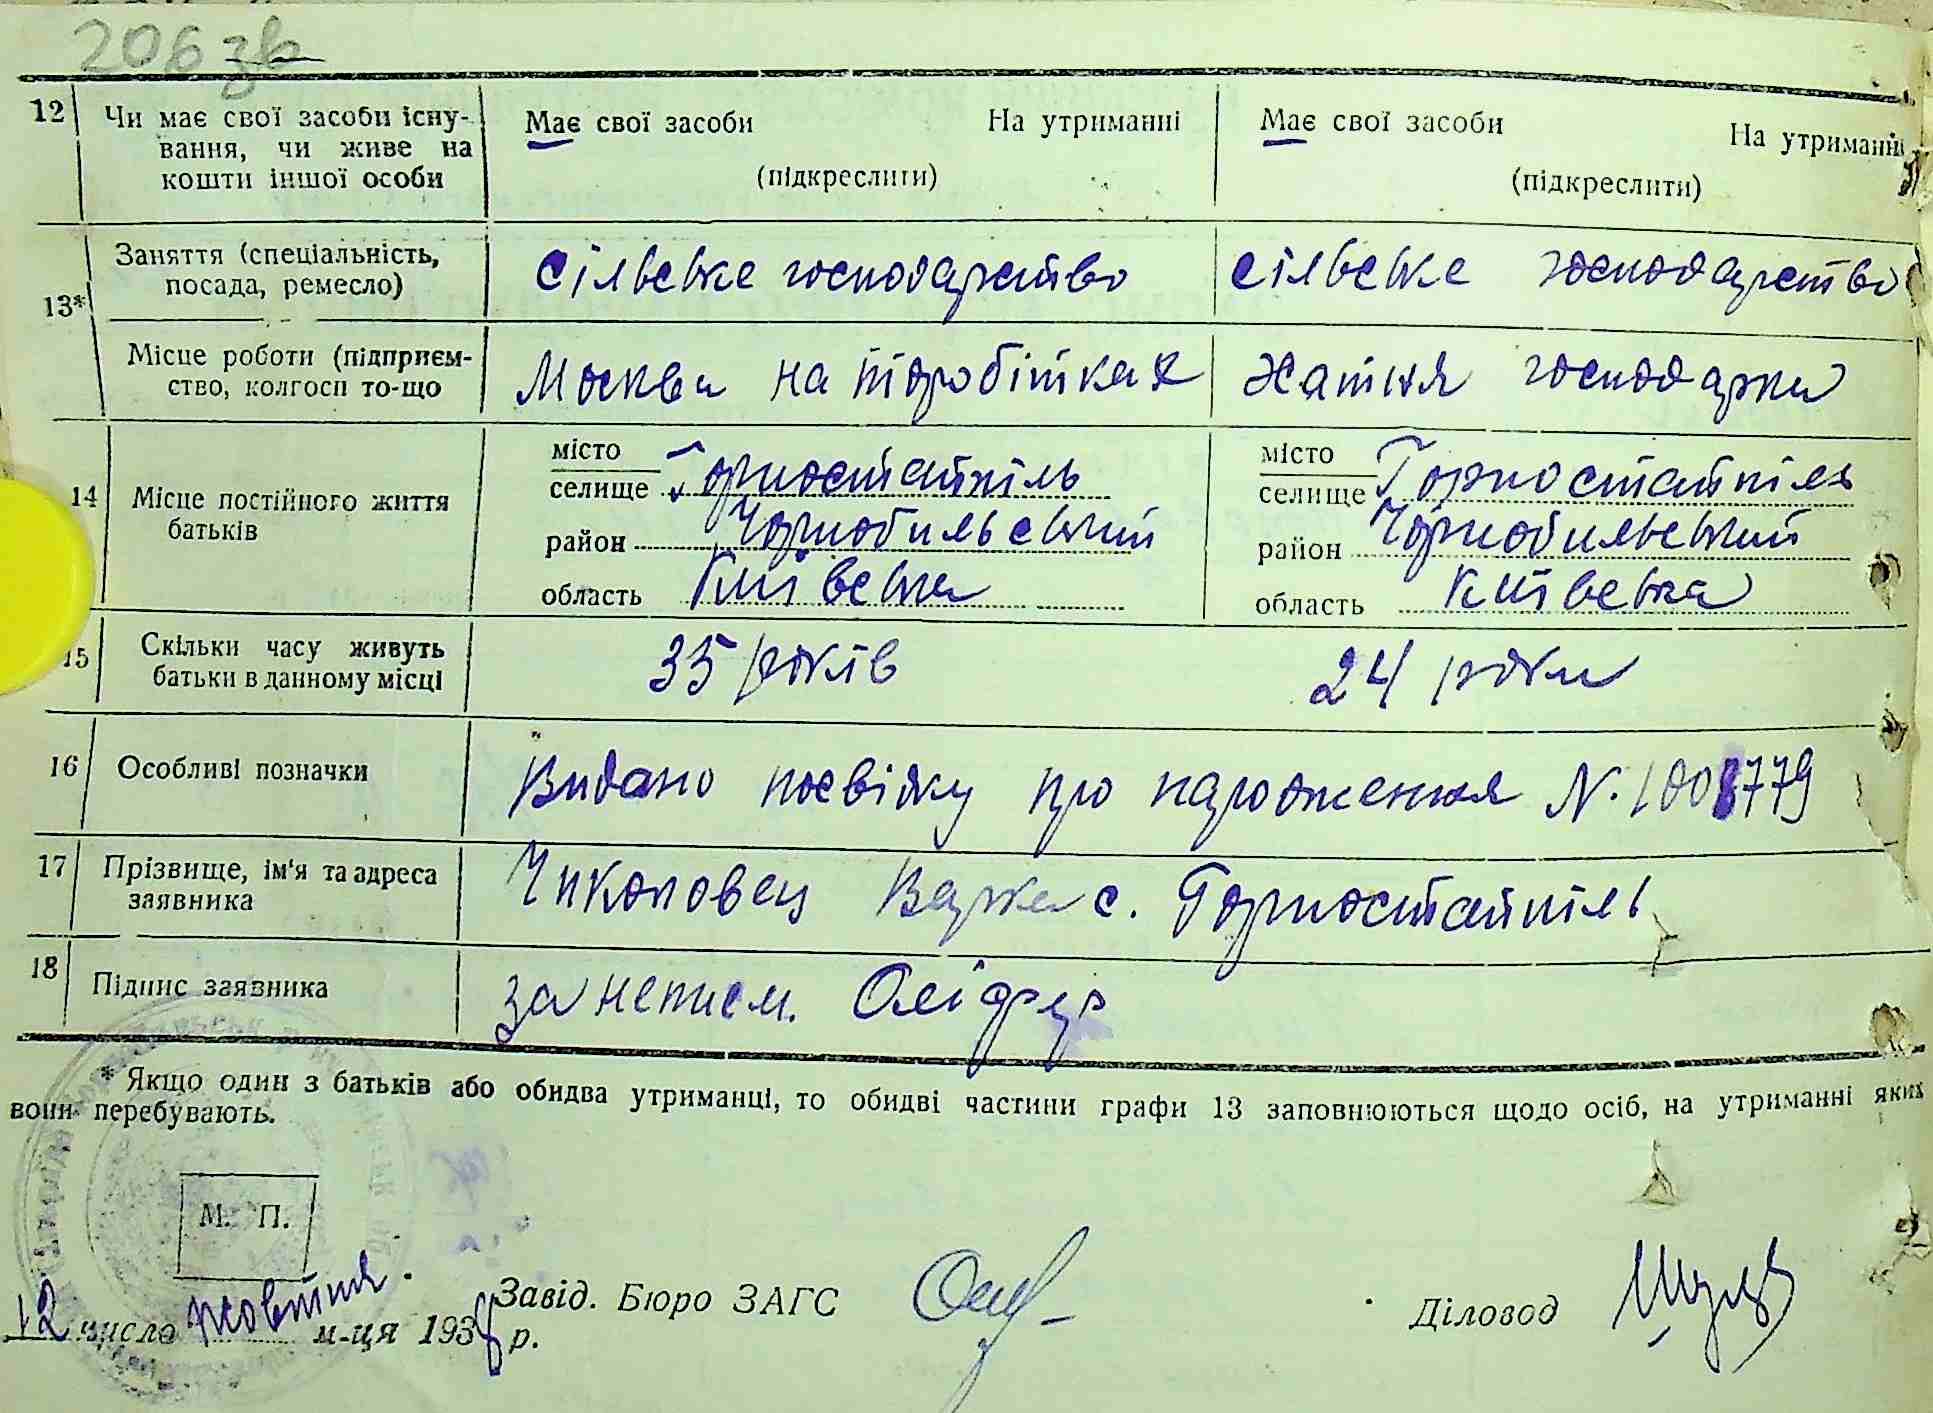 206 зв
12 Чи має свої засоби існу-
вання, чи живе на
кошти іншої особи
Має свої засоби На утриманні
(підкреслити)
Має свої засоби На утриманні
(підкреслити)
13* Заняття (спеціальність,
посада, ремесло)
сільське господарство
сільське господарство
Місце роботи (підприєм-
ство, колгосп то-що
Москва на підробітках
Хатня господарка
14 Місце постійного життя
батьків
місто
селище Горностайпіль
район Чорнобильський
область Київська
місто
селище Горностайпіль
район Чорнобильський
область Київська
15 Скільки часу живуть
батьки в данному місці
35 років
24 роки
16 Особливі позначки
Видано посвідку про народження N. 1008779
17 Прізвище, ім'я та адреса
заявника
Чиколовец Варка с. Горностайпіль
18 Підпис заявника
за неписм.
* Якщо один з батьків або обидва утриманці, то обидві частини графи 13 заповнюються щодо осіб, на утриманні яких
вони перебувають.
М. П.
12 число жовтня м-ця 1938 р.
Завід. Бюро ЗАГС
Діловод